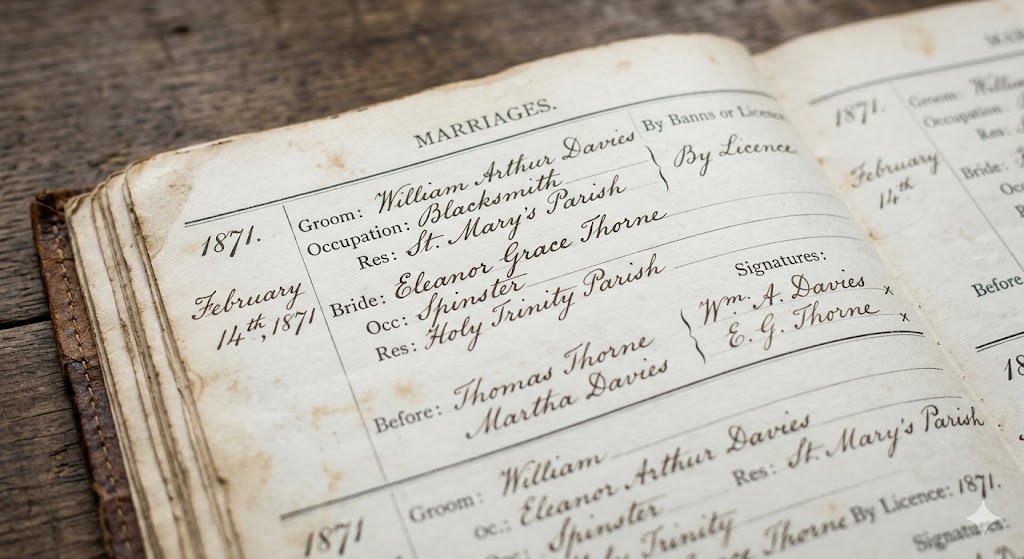 MARRIAGES.
By Banns or Licence
1871.
Groom: William Arthur Davies
Occupation: Blacksmith
Res: St. Mary's Parish
By Licence
February
14th, 1871
Bride: Eleanor Grace Thorne
Occ: Spinster
Res: Holy Trinity Parish
Signatures:
Wm. A. Davies x
E. G. Thorne x
Before: Thomas Thorne
Martha Davies
1871
Groom: William
oc.: Eleanor Arthur Davies
Res: St. Mary's Parish
Spinster
Trinity
Thorne By Licence: 1871.
Signatures:
1871.
Groom: William
Occupation:
Res:
February
14th
Bride:
Before